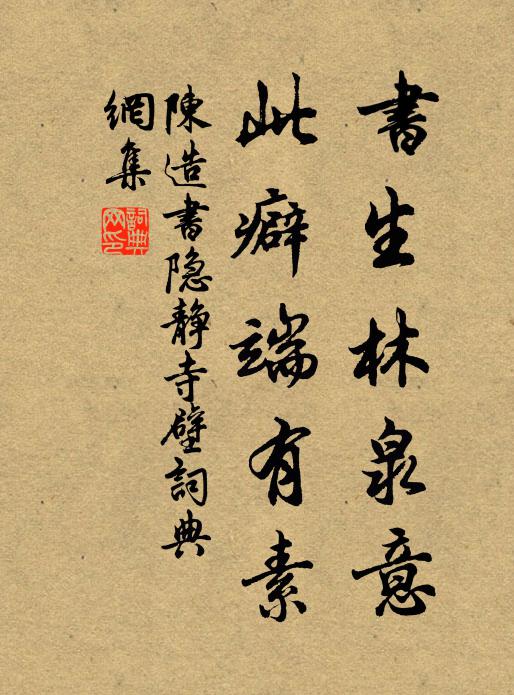 書生林泉意
此癖端有素
陳造書隐静寺壁詞典
網集
詞典
网印